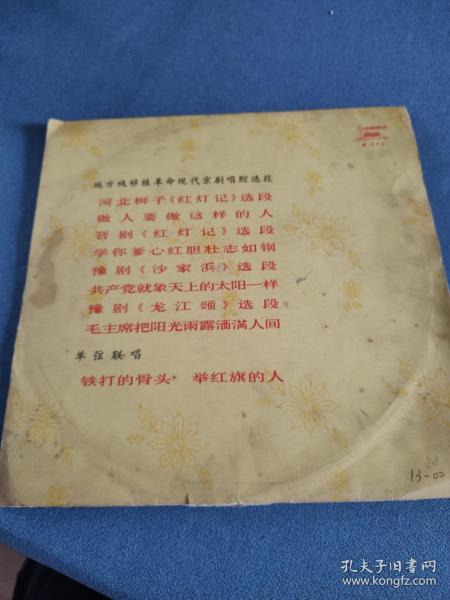 地方戏移植革命现代京剧唱腔选段
河北梆子《红灯记》选段
做人要做这样的人
晋剧《红灯记》选段
学你爹心红胆壮志如钢
豫剧《沙家浜》选段
共产党就象天上的太阳一样
豫剧《龙江颂》选段
毛主席把阳光雨露洒满人间
单弦联唱
铁打的骨头 举红旗的人
13-00
孔夫子旧书网
www.kongfz.com